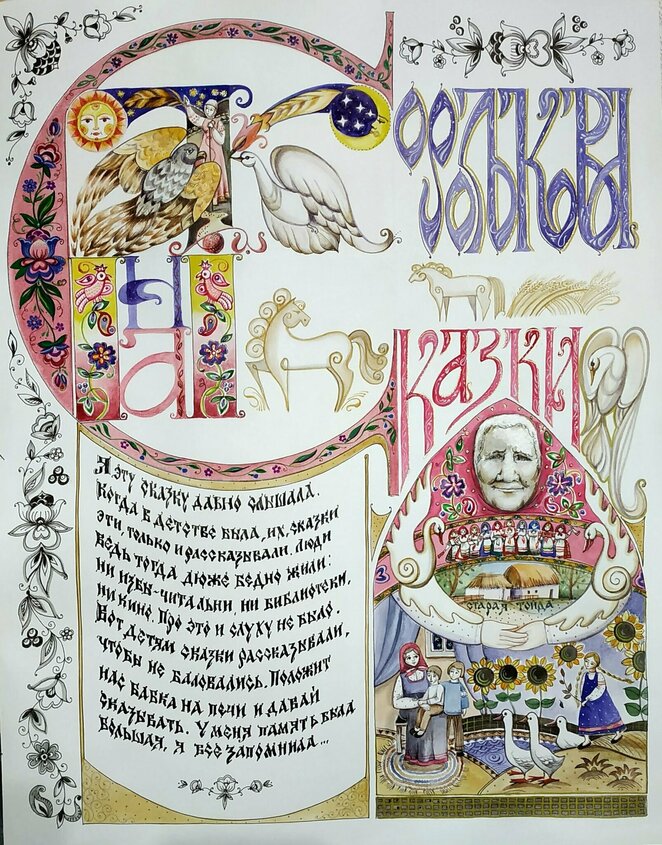 казки
Я эту сказку давно слышала.
Когда в детстве была, их, сказки
эти, только и рассказывали. Люди
ведь тогда дюже бедно жили:
ни избы-читальни, ни библиотеки,
ни кино. Про это и слуху не было.
Вот детям сказки рассказывали,
чтобы не баловались. Положит
нас бабка на печи и давай
сказывать. У меня память была
большая, я всё запомнила...
старая тойда